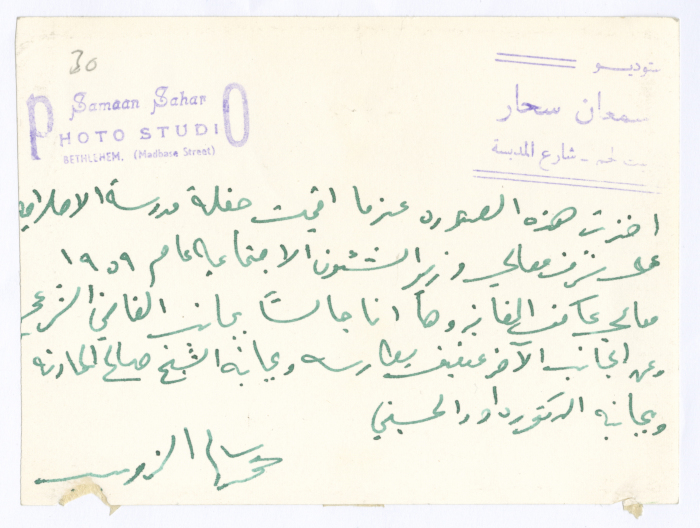 30
Samaan Sahar
PHOTO STUDIO
BETHLEHEM. (Madbase Street)
ستوديو
سمعان سحار
بيت لحم - شارع المدبسة
اخذت هذه الصوره عندما اقيمت حفلة مدرسة الاصلاحيه
على شرف معالي وزير الشئون الاجتماعيه عام ١٩٥٩
معالي عاكف الفايز وها انا جالسًا بجانب القاضي الشرعي
وعن الجانب الآخر عفيف بطارسه وبجانبه الشيخ صالح
وبجانبه الدكتور داود الحسيني
محمد سالم الذويب